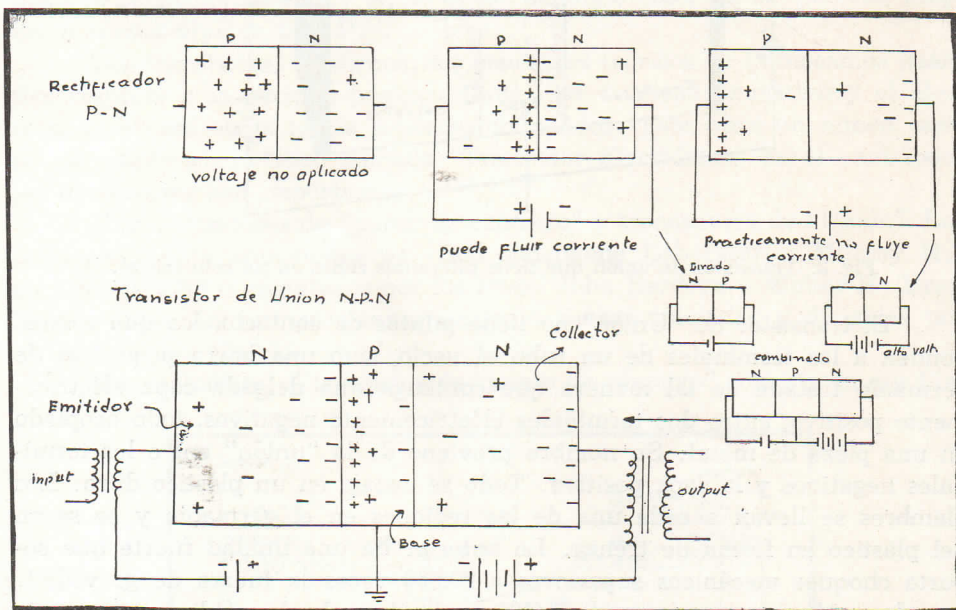 P N
Rectificador
P-N
voltaje no aplicado
P N
puede fluir corriente
P N
Practicamente no fluye
corriente
Transistor de Union N-P-N
N P N
Collector
Emitidor
input
output
Base
N P
N
alto volt.
combinado
N P N